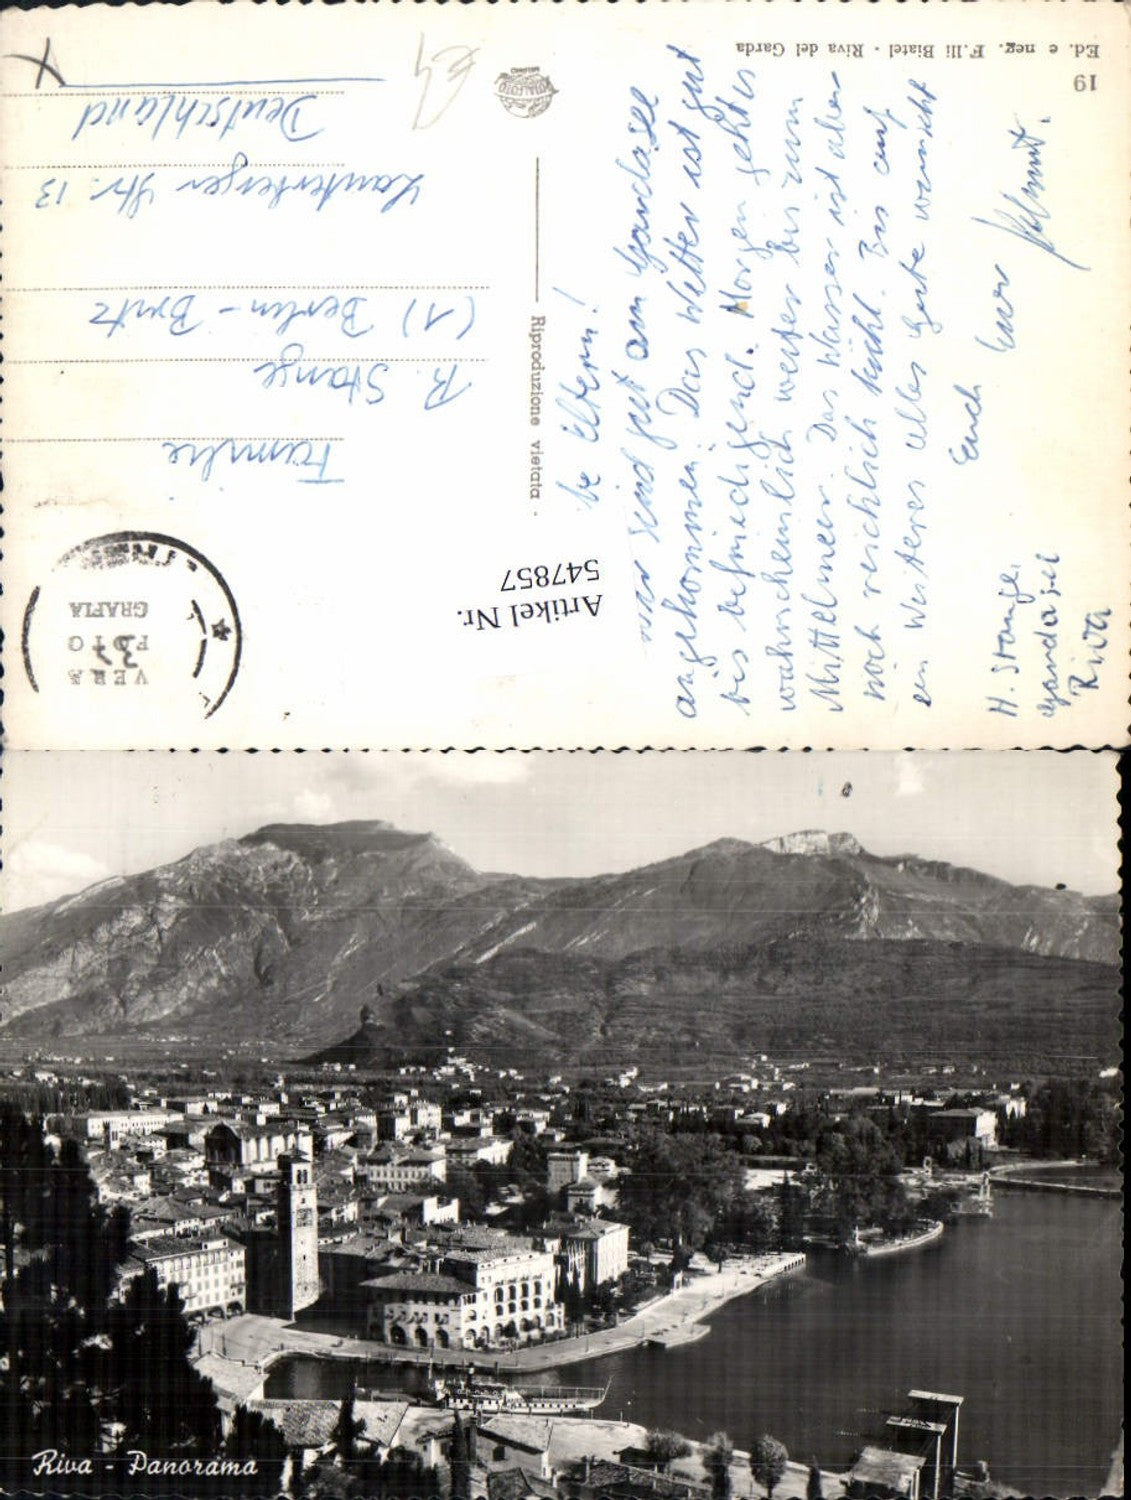 19
Ed. e neg. F.lli Biatel - Riva del Garda
H. Stange
Gardasee
Riva
be Eltern!
sind gut am Gardasee
angekommen. Das Wetter ist gut
bis befriedigend. Morgen gehts
wahrscheinlich weiter bis zum
Mittelmeer. Das Wasser ist aber
noch reichlich kühl. Bis auf
ein Weiteres alles Gute wünscht
Euch Euer Helmut.
Artikel Nr.
547857
Riproduzione vietata -
VERA
FOTO
GRAFIA
Familie
R. Stange
(1) Berlin - Britz
Str. 13
Deutschland
€4
Riva - Panorama